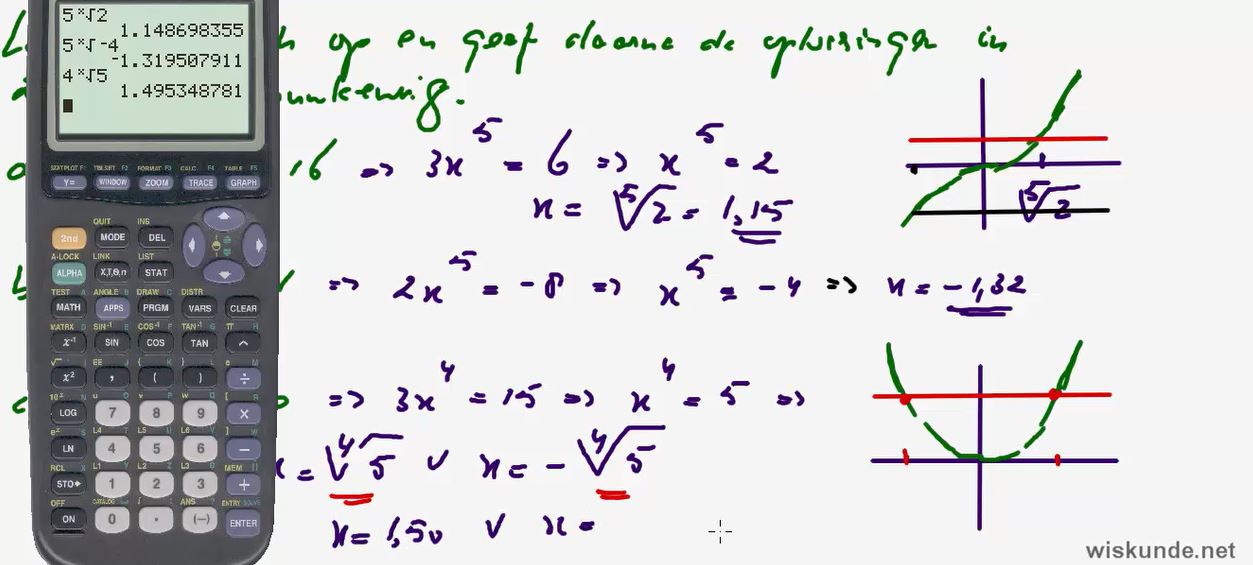 5ˣ√2
1.148698355
5ˣ√-4
-1.319507911
4ˣ√5
1.495348781
op en geef daarna de oplossingen in
nkeurig.
16 => 3x⁵ = 6 => x⁵ = 2
x = ⁵√2 = 1,15
⁵√2
=> 2x⁵ = -8 => x⁵ = -4 => x = -1,32
=> 3x⁴ = 15 => x⁴ = 5 =>
x = ⁴√5 v x = -⁴√5
x = 1,50 v x =
STATPLOT F1 TBLSET F2 FORMAT F3 CALC F4 TABLE F5
Y= WINDOW ZOOM TRACE GRAPH
QUIT INS
2nd MODE DEL
A-LOCK LINK LIST
ALPHA X,T,Θ,n STAT
TEST A ANGLE B DRAW C DISTR
MATH APPS PRGM VARS CLEAR
MATRX D SIN⁻¹ E COS⁻¹ F TAN⁻¹ G π H
x⁻¹ SIN COS TAN ^
√ I EE J { K } L e M
x² , ( ) ÷
10ˣ N u O v P w Q [ R
LOG 7 8 9 ×
eˣ S L4 T L5 U L6 V ] W
LN 4 5 6 −
RCL X L1 Y L2 Z L3 θ MEM "
STO▸ 1 2 3 +
OFF CATALOG i : ANS ? ENTRY SOLVE
ON 0 . (−) ENTER
wiskunde.net